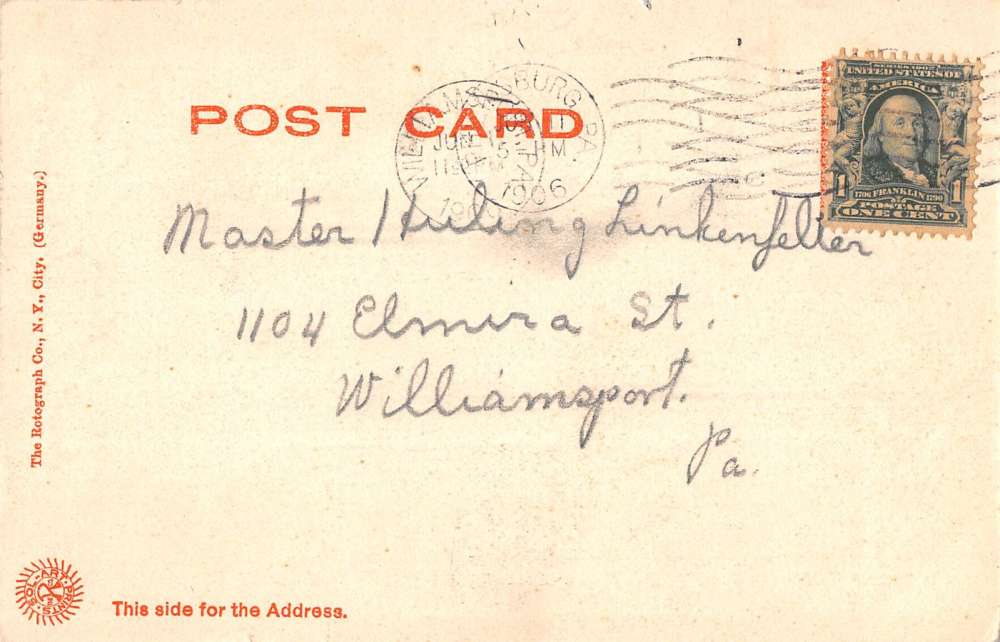 POST CARD
BURG PA.
WILLIAMS
JUN
5 PM
1906
SERIES 1902
UNITED STATES OF
AMERICA
1 1
1706 FRANKLIN 1790
POSTAGE
ONE CENT
Master Huling Linkenfelter
1104 Elmira St.
Williamsport.
Pa.
The Rotograph Co., N. Y., City. (Germany.)
SOL-ART-PRINTS
This side for the Address.